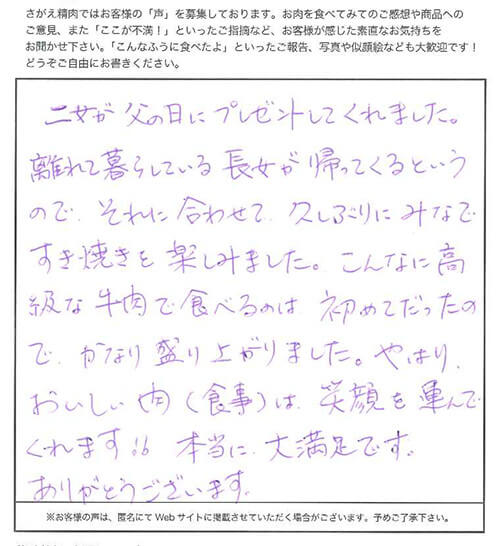 さがえ精肉ではお客様の「声」を募集しております。お肉を食べてみてのご感想や商品への
ご意見、また「ここが不満！」といったご指摘など、お客様が感じた素直なお気持ちを
お聞かせ下さい。「こんなふうに食べたよ」といったご報告、写真や似顔絵なども大歓迎です！
どうぞご自由にお書きください。
二女が父の日にプレゼントしてくれました。
離れて暮らしている長女が帰ってくるという
ので、それに合わせて、久しぶりにみなで
すき焼きを楽しみました。こんなに高
級な牛肉で食べるのは、初めてだったの
で、かなり盛り上がりました。やはり、
おいしい肉（食事）は、笑顔を運んで
くれます!! 本当に、大満足です。
ありがとうございます。
※お客様の声は、匿名にてWebサイトに掲載させていただく場合がございます。予めご了承下さい。